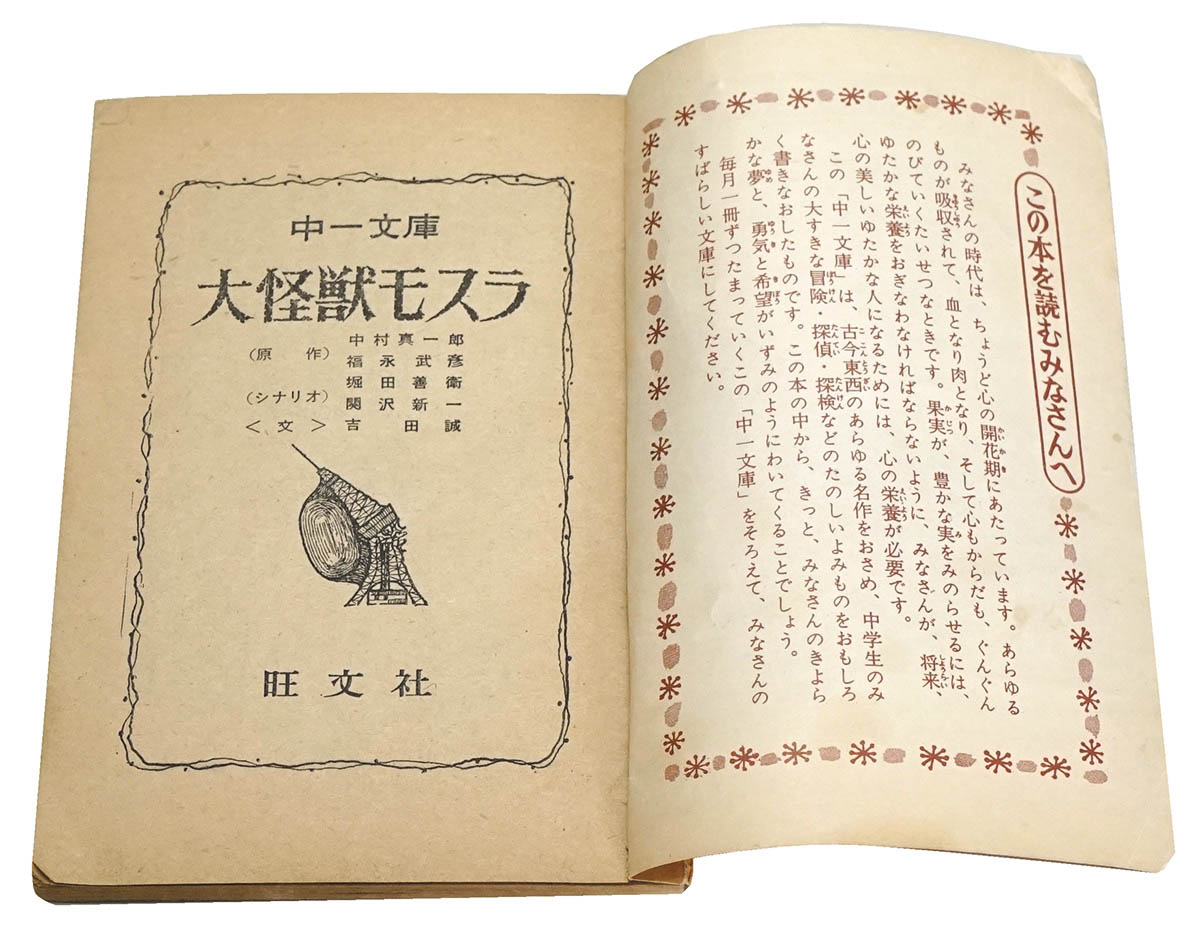 この本を読むみなさんへ
みなさんの時代は、ちょうど心の開花期にあたっています。あらゆる
ものが吸収されて、血となり肉となり、そして心もからだも、ぐんぐん
のびていくたいせつなときです。果実が、豊かな実をみのらせるには、
ゆたかな栄養をおぎなわなければならないように、みなさんが、将来、
心の美しいゆたかな人になるためには、心の栄養が必要です。
この「中一文庫」は、古今東西のあらゆる名作をおさめ、中学生のみ
なさんの大すきな冒険・探偵・探検などのたのしいよみものをおもしろ
く書きなおしたものです。この本の中から、きっと、みなさんのきよら
かな夢と、勇気と希望がいずみのようにわいてくることでしょう。
毎月一冊ずつたまっていくこの「中一文庫」をそろえて、みなさんの
すばらしい文庫にしてください。
中一文庫
大怪獣モスラ
(原作) 中村真一郎
福永武彦
堀田善衛
(シナリオ) 関沢新一
<文> 吉田誠
旺文社